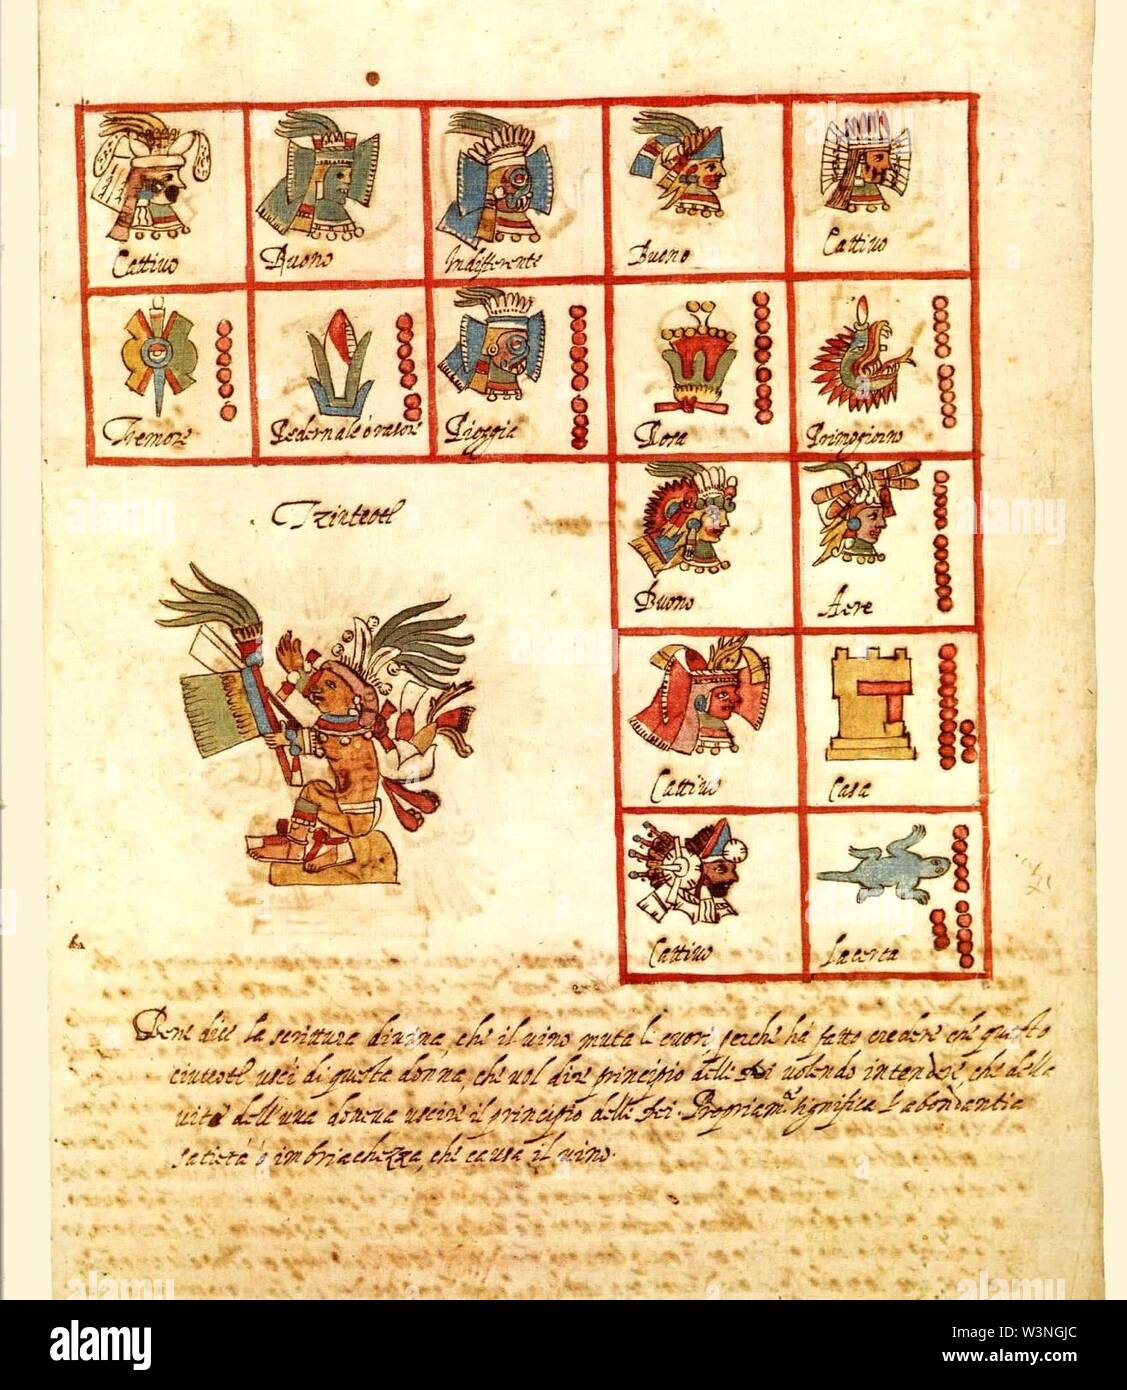 Cattiuo Buono Indifferente Buono Cattiuo
Tremore Pedernale ó rasore Pioggia Rosa Primogiorno
Tzinteotl
Buono Aere
Cattiuo Casa
Cattiuo Lacerta
Bene dice la scrittura diuina, che il uino muta li cuori, perche há fatto credere che questo
ciuteotl uscí di questa donna, che uol dire principio delli Dei uolendo intendere, che della
uite dell'uua doueua uscire il principio delli Dei. Propriam.te significa l'abondantia
satietá ó imbriachezza, che causa il uino.
alamy
Image ID: W3NGJC
www.alamy.com